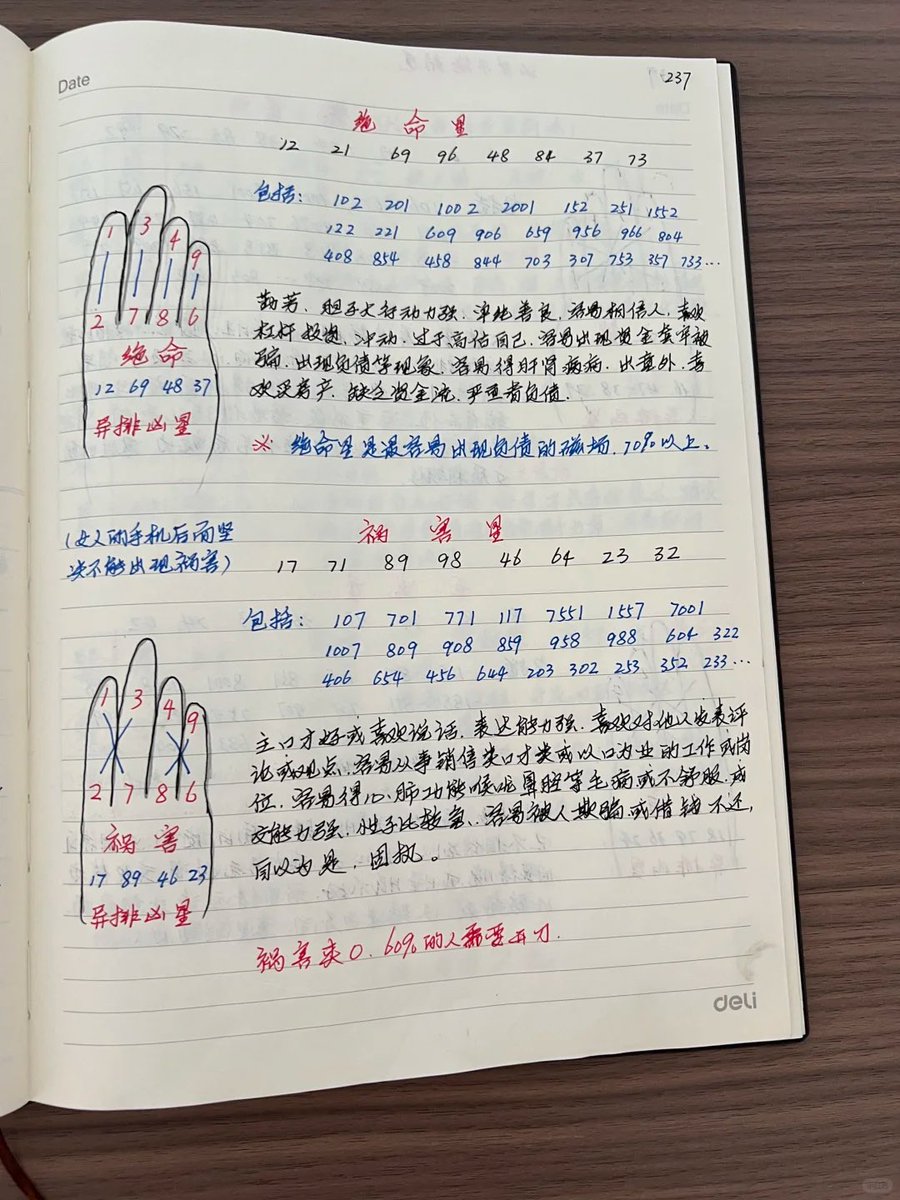 Date
237
绝命星
12 21 69 96 48 84 37 73
包括: 102 201 1002 2001 152 251 1552
122 221 609 906 659 956 966 804
408 854 458 844 703 307 753 357 733…
1 3 4 9
2 7 8 6
绝命
12 69 48 37
异排凶星
勤劳、胆子大行动力强、单纯善良、容易相信人、喜欢
杠杆投资、冲动、过于高估自己、容易出现资金套牢被
骗、出现负债等现象、容易得肝肾疾病、出意外、喜
欢买房产、缺乏资金流、严重者负债.
※ 绝命星是最容易出现负债的磁场、70%以上。
(女人的手机后面坚
决不能出现祸害)
祸害星
17 71 89 98 46 64 23 32
包括: 107 701 771 117 7551 1557 7001
1007 809 908 859 958 988 604 322
406 654 456 644 203 302 253 352 233…
1 3 4 9
2 7 8 6
祸害
17 89 46 23
异排凶星
主口才好或喜欢说话、表达能力强、喜欢对他人发表评
论或观点、容易从事销售类口才类或以口为业的工作或岗
位、容易得心、肺功能喉咙鼻腔等毛病或不舒服、成
交能力强、性子比较急、容易被人欺骗或借钱不还,
自以为是、固执。
祸害夹0、60%的人需要开刀.
deli